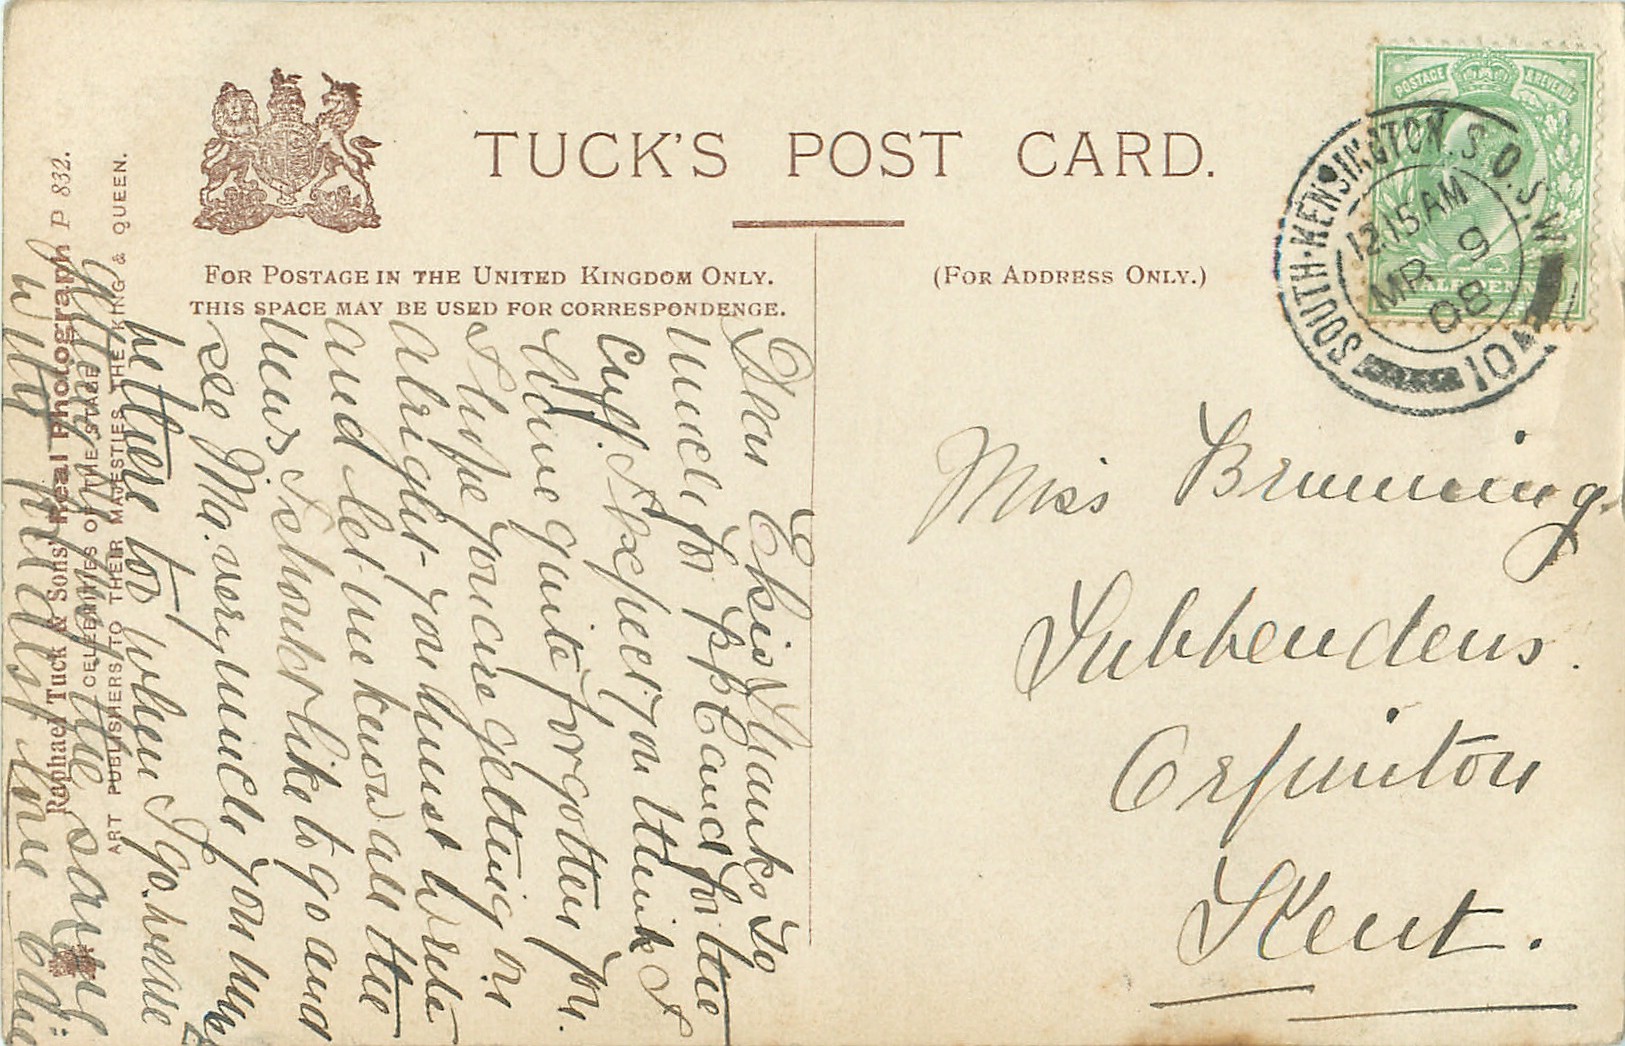 TUCK'S POST CARD.
FOR POSTAGE IN THE UNITED KINGDOM ONLY.
THIS SPACE MAY BE USED FOR CORRESPONDENCE.
(FOR ADDRESS ONLY.)
POSTAGE & REVENUE
HALFPENNY
SOUTH·KENSINGTON.S.O.S.W.
12.15AM
MR 9
08
104
Miss Brunning.
Tubbendens.
Orpinton
Kent.
Dear Elsie Thanks so
much for pp Card for the
Cuff. I expect you think I
have quite forgotten you.
I hope you are getting on
alright you must write
and let me know all the
news I should like to go and
see Ma. very much you must
be there to when I go. we are
all the same
with fondest love
Raphael Tuck & Sons' Real Photograph P 832.
CELEBRITIES OF THE STAGE
ART PUBLISHERS TO THEIR MAJESTIES THE KING & QUEEN.